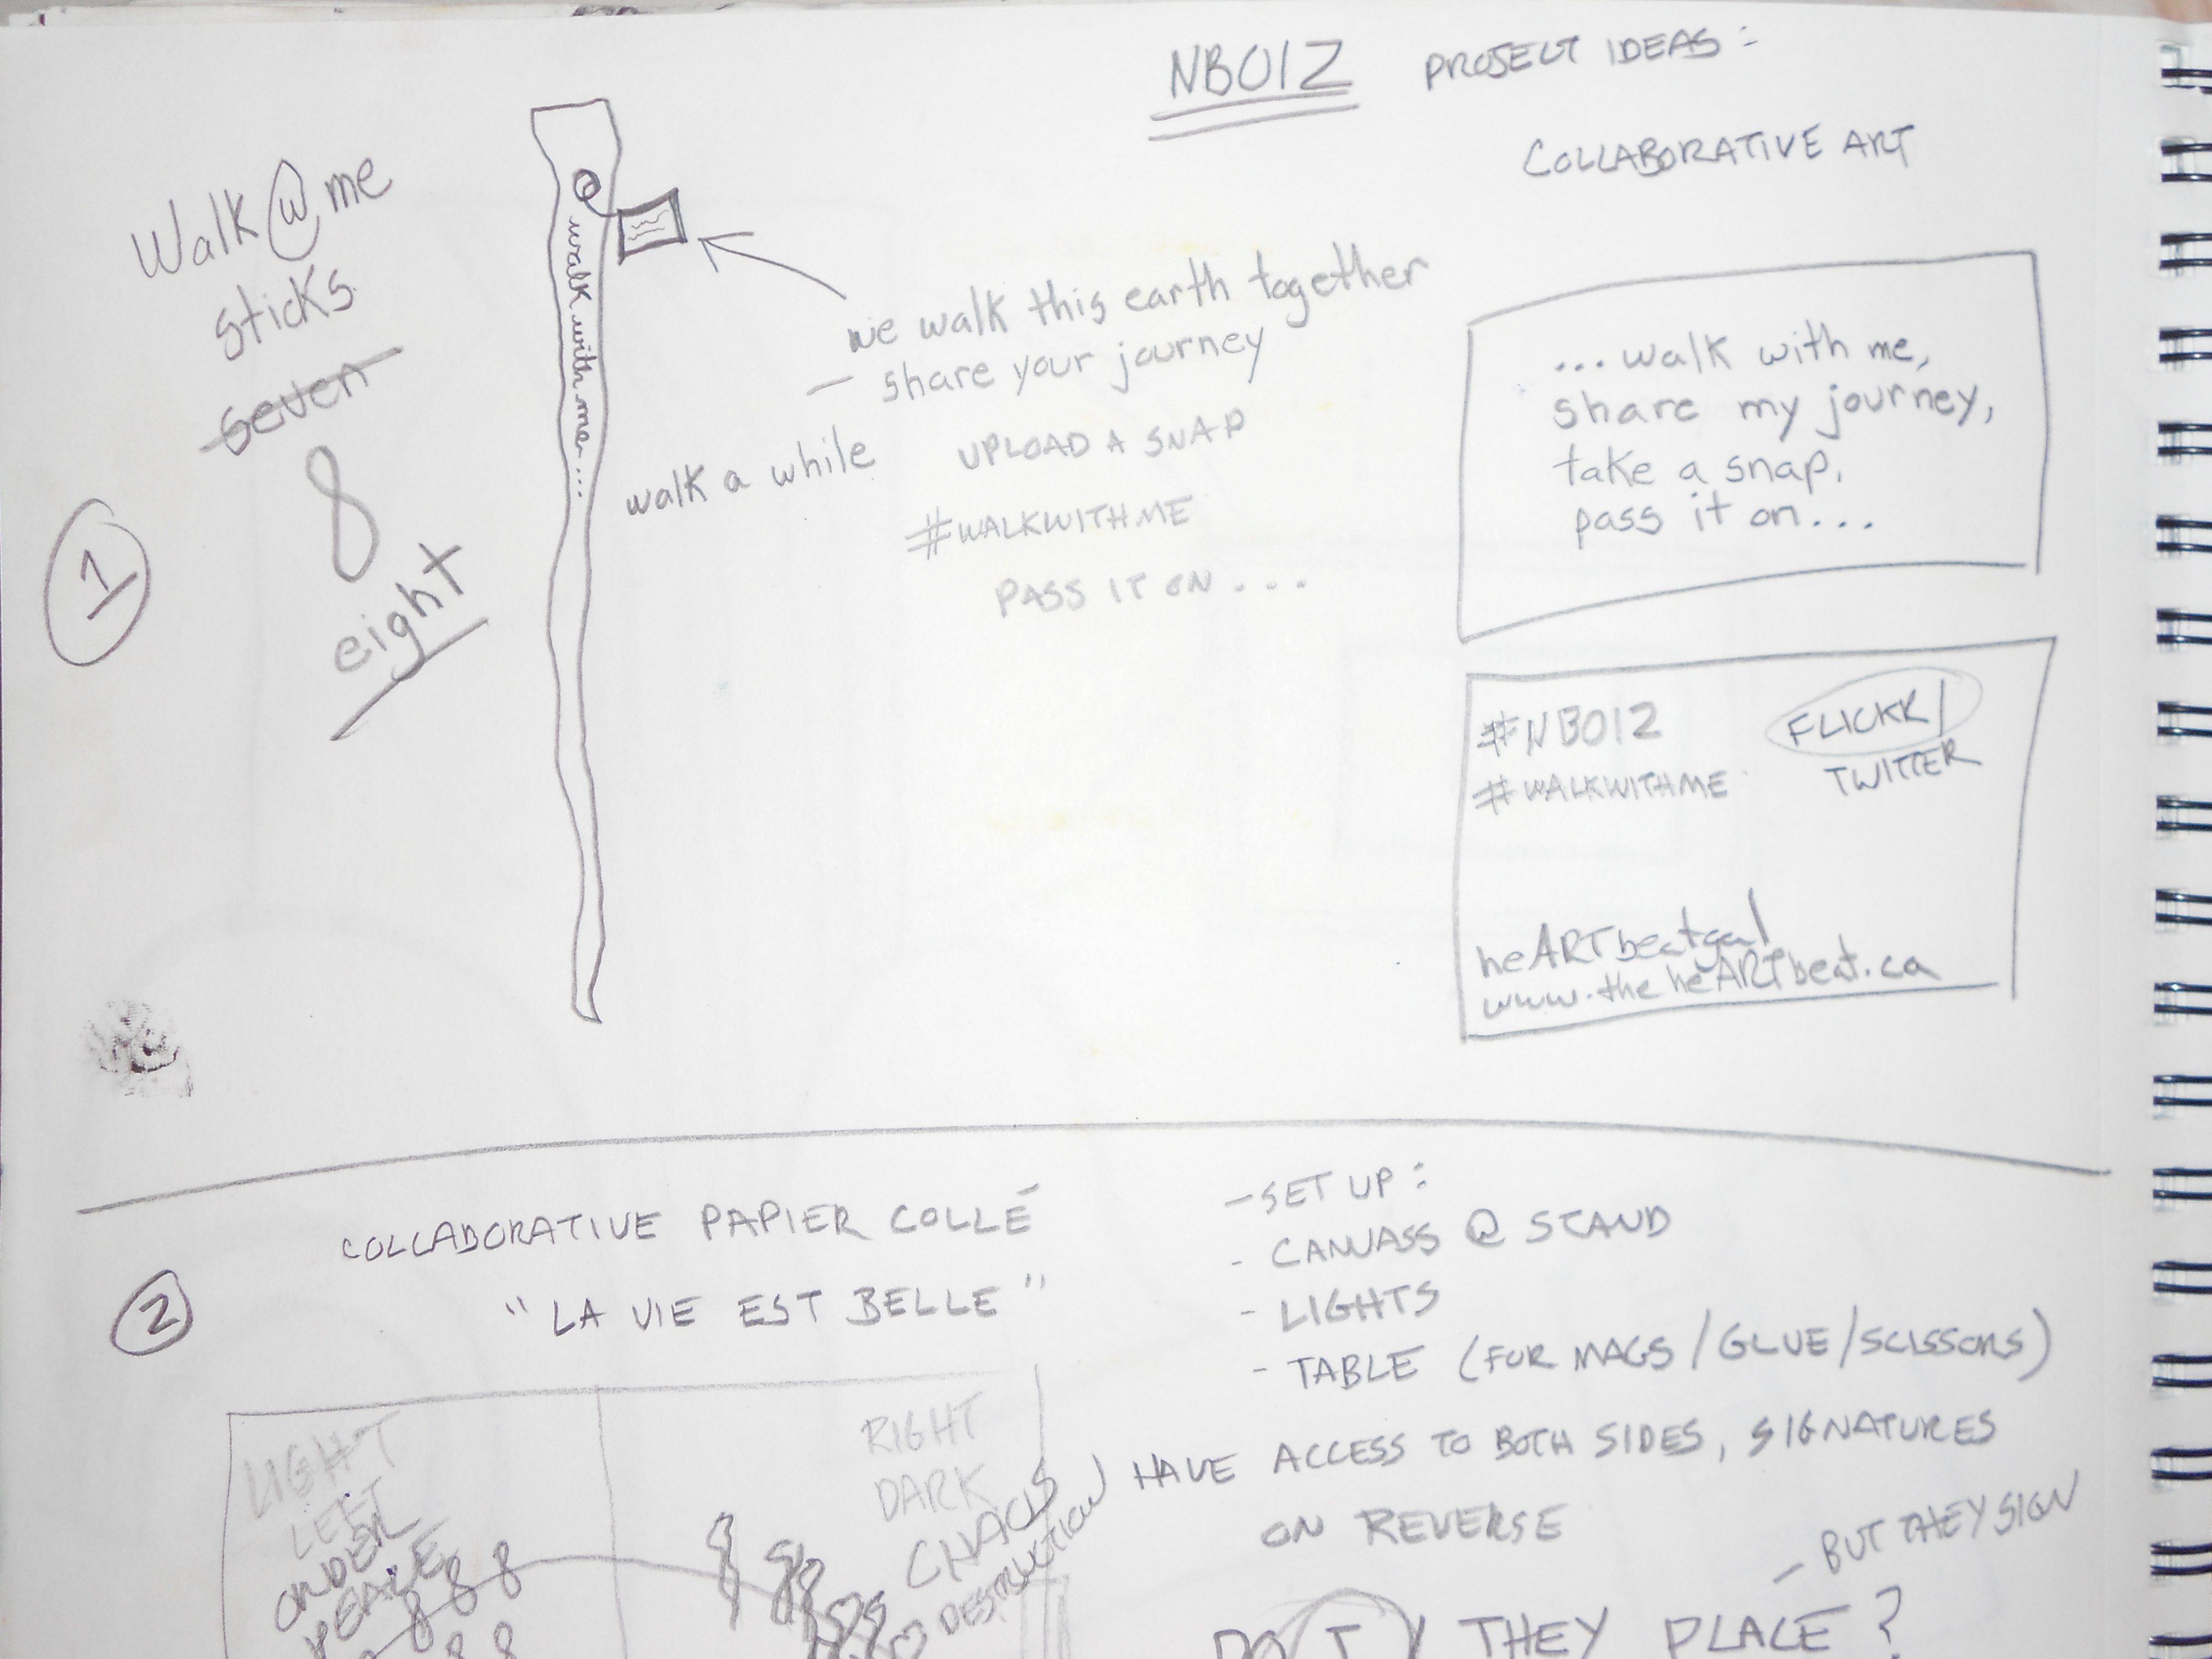 NB012 PROJECT IDEAS:
COLLABORATIVE ART
1
Walk w me
sticks
seven
8
eight
walk with me...
we walk this earth together
– share your journey
walk a while
UPLOAD A SNAP
#WALKWITHME
PASS IT ON...
...walk with me,
share my journey,
take a snap,
pass it on...
#NB012 FLICKR/
#WALKWITHME TWITTER
heARTbeatgal
www.theheARTbeat.ca
2
COLLABORATIVE PAPIER COLLÉ
"LA VIE EST BELLE"
– SET UP:
- CANVASS @ STAND
- LIGHTS
- TABLE (FOR MAGS/GLUE/SCISSORS)
HAVE ACCESS TO BOTH SIDES, SIGNATURES
ON REVERSE
– BUT THEY SIGN
DO I / THEY PLACE?
LIGHT
LEFT
ORDER
PEACE
RIGHT
DARK
CHAOS
DESTRUCTION